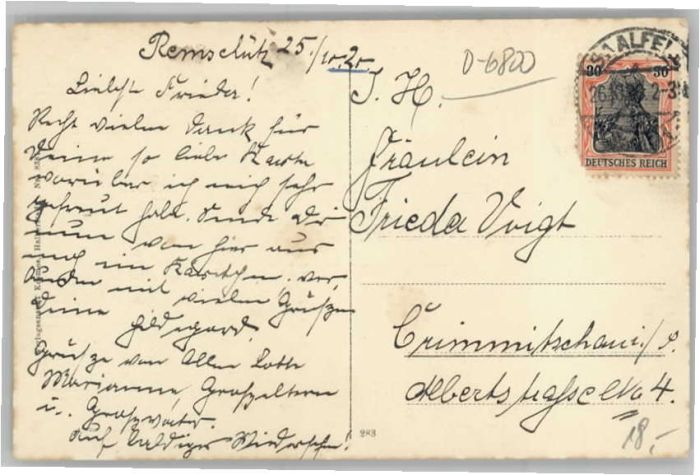 Remschütz 25./10.20
Liebste Frieda!
Recht vielen Dank für
Deine so liebe Karte
worüber ich mich sehr
gefreut hab. Sende dir
nun von hier aus
noch ein Kärtchen.
mit vielen Grüßen
Deine Hildegard.
Grüße von Allen Lotte
Marianne, Großeltern
u. Großvater.
Auf baldiges Wiedersehen!
D-6800
I. H.
Fräulein
Frieda Voigt
Crimmitschau i/S.
Albertstraße No 4.
18,-
283
SAALFELD
30 30
DEUTSCHES REICH